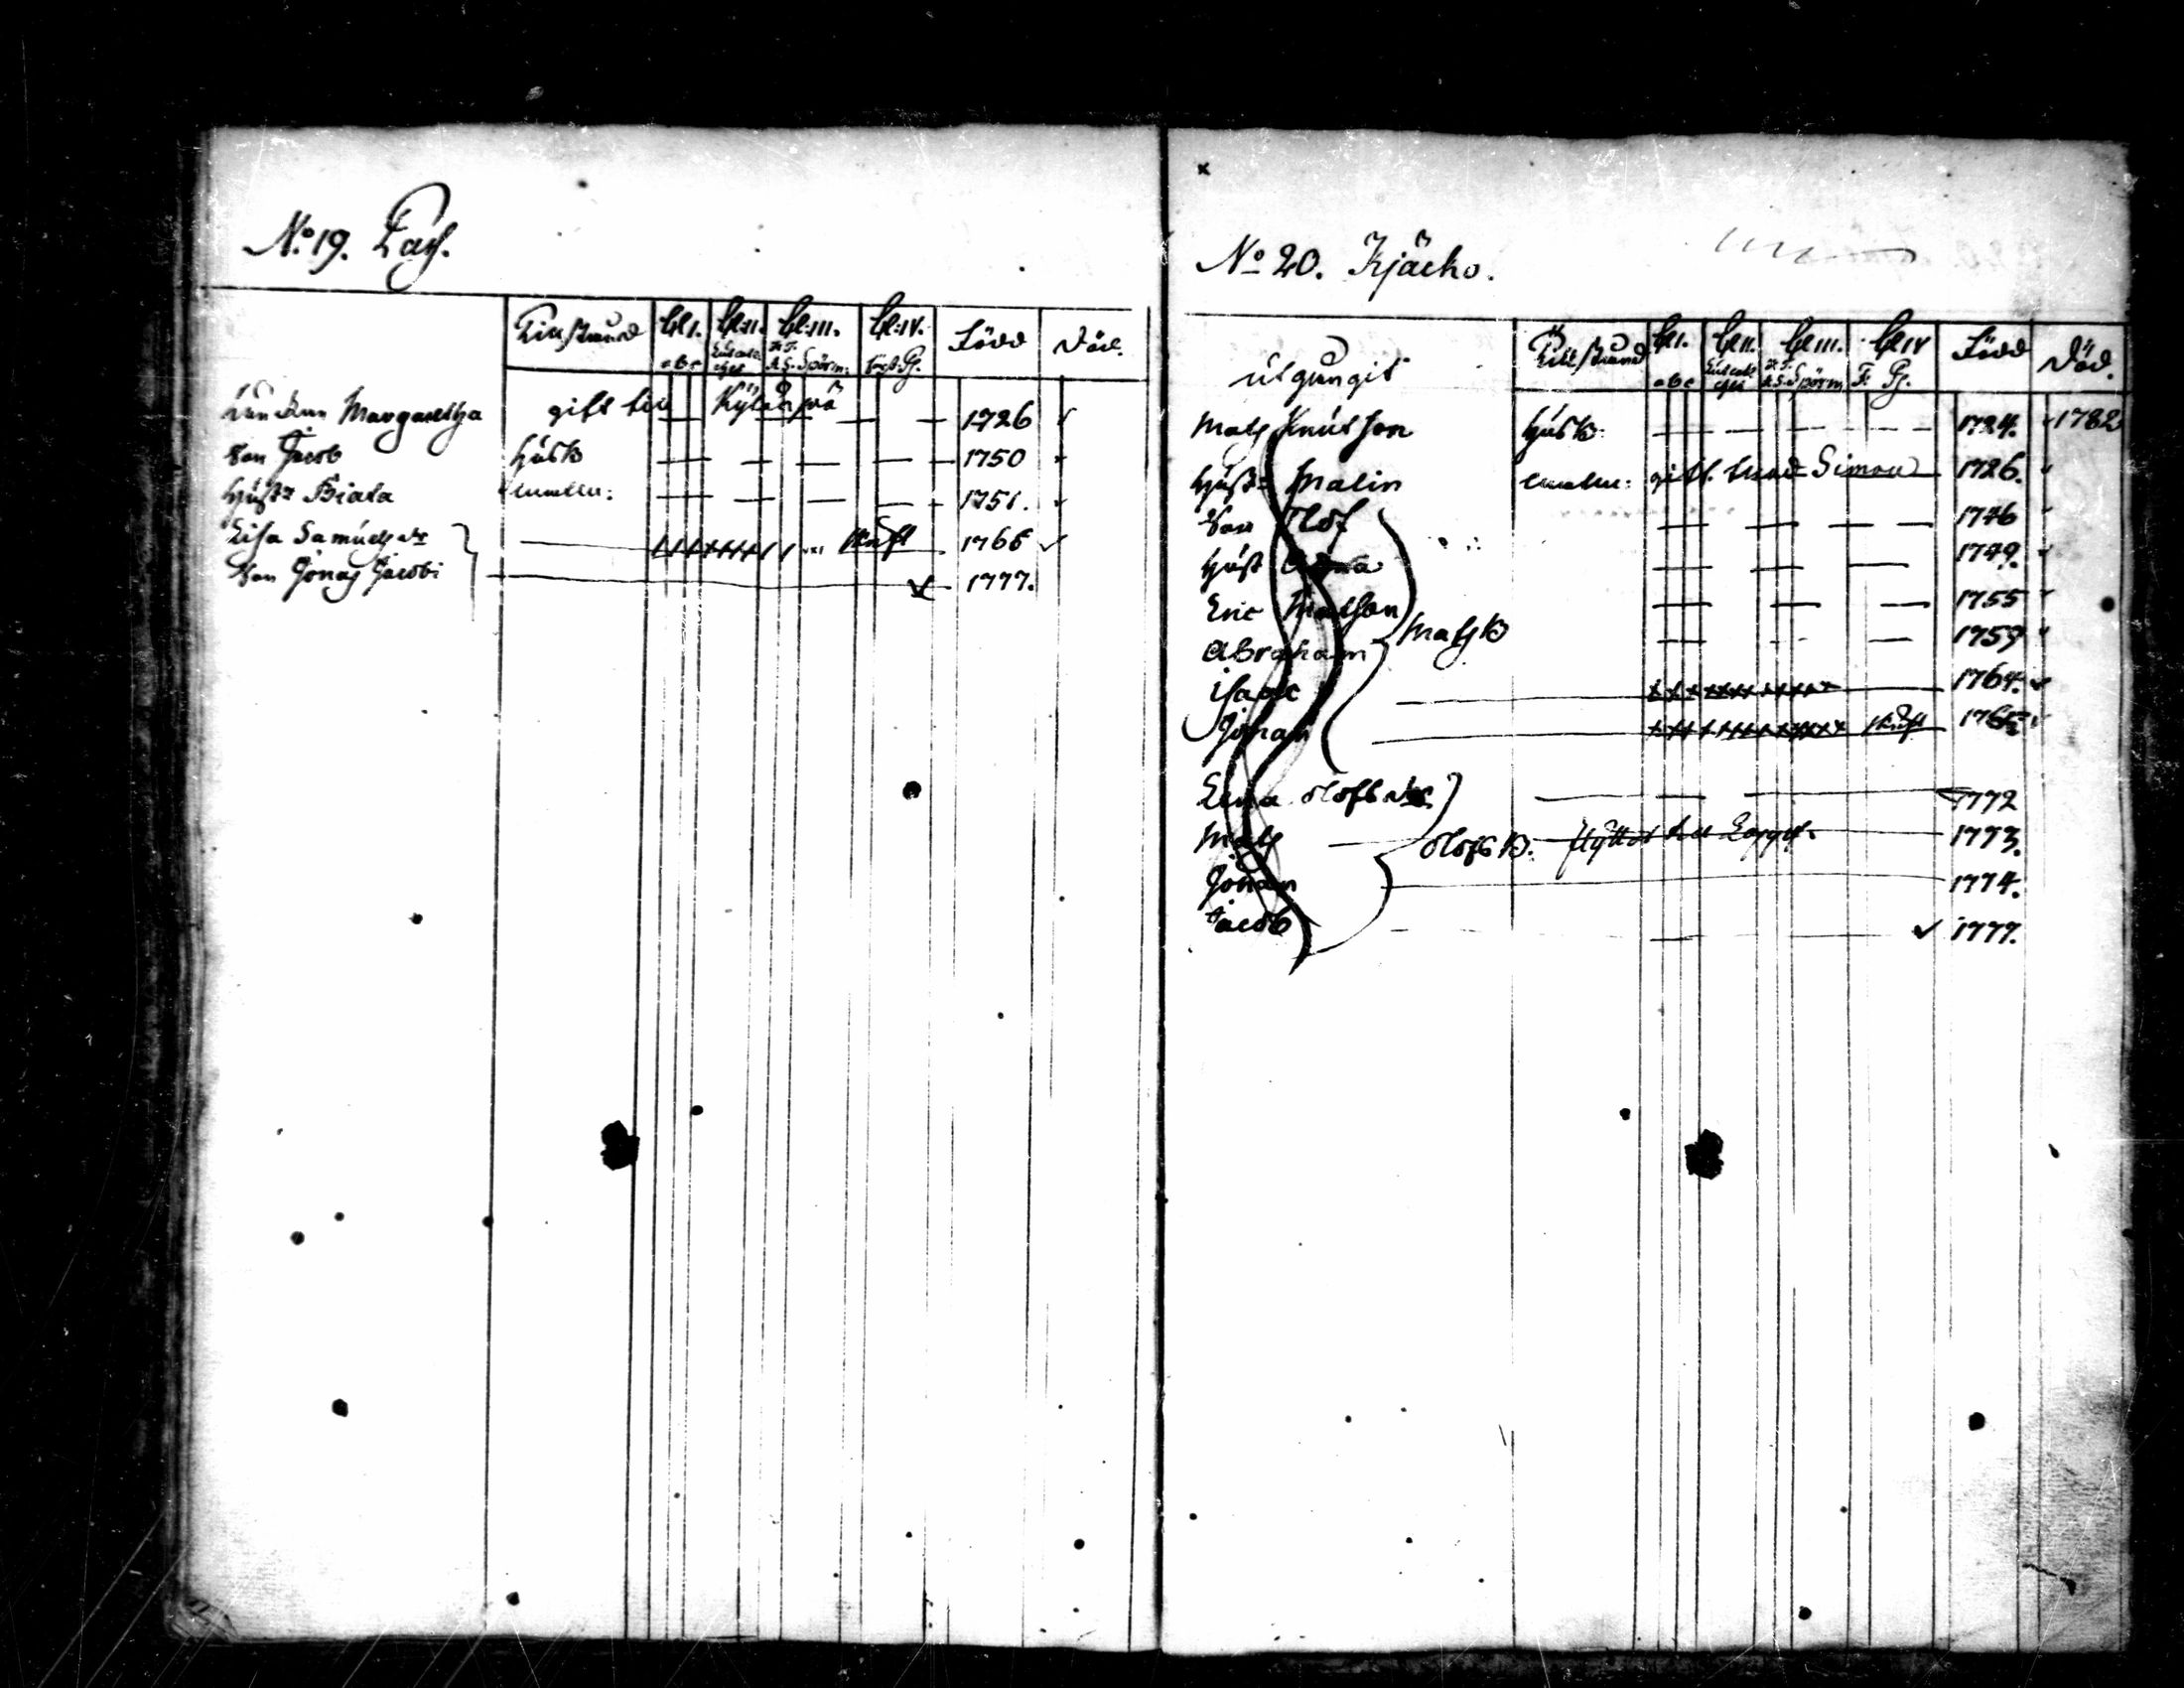 No 19. Pass.
Tillstånd Cl. I. Cl. II. Cl. III. Cl. IV. Född Död.
a b c Spörsm.
Margaretha gift till 1726
Son Jacob Husb 1750
Hust: Beata 1751.
Lisa Samuels dr 1765
Son Jonas Jacobi 1777.
No 20. Kjäcko.
utgungit Tillstånd Cl I. Cl II. Cl III. Cl IV Född Död.
a b c Spörsm F.
Mats Knutsson Husb: 1724. 1782
Hust: Malin gift med Simon 1726.
Son Olof 1746
Hust Anna 1749.
Eric Matsson 1755
Abraham Mats B 1759
Isaac 1764.
Johan 1765
Lena Olofs dr 1772
Mats Olofs B. flyttat till 1773.
Johan 1774.
Jacob 1777.